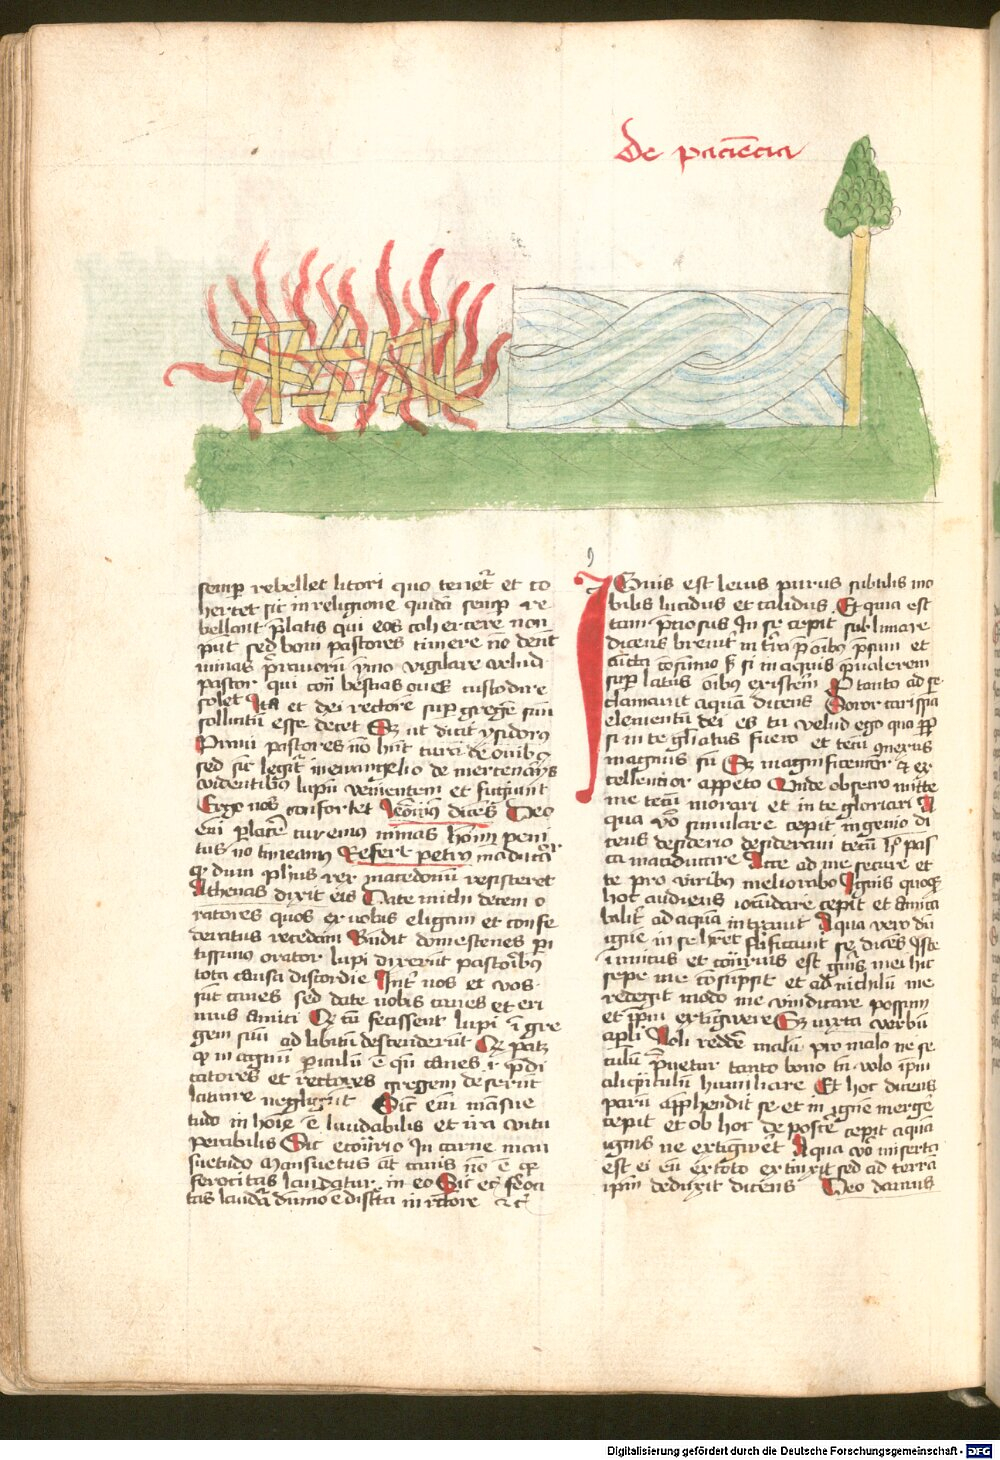 De paciencia
semp rebellet litori quo tenet et co
hertet sic in religione quidā semp re
bellant p̄latis qui eos cohercere non
pn̄t sed boni pastores timere nō debent
minas prauorū ymo vigilare velud
pastor qui con̄ bestias oues custodire
solet Ita et dei rectore sup gregē suū
sollicitū esse decet Et ut dicit ysidorus
Praui pastores nō hn̄t curā de ouibus
sed sic legit in ewangelio de mercenarijs
videntibus lupū venientem et fugiunt
Ergo nos confortet dices Deo
eni placere curemus minas hoīm peni
tus nō timeamus Refert petrus
q dum philipus rex macedonū resisteret
Athenas dixit eis Date michi decem o
ratores quos ex vobis eligam et confe
deratus recedam Rūdit domestenes pi
tissimus orator lupi dixerūt pastoribus
tota causa discordie Int nos et vos
sūt canes sed date nobis canes et eri
mus amici Qd cū fecissent lupi ī gre
gem suū ad libitū descenderūt
q in magnū piculū ē qn̄ canes .i. pdi
catores et rectores gregem deserūt
latrare negligūt Sic eni māsue
tudo in hoīe ē laudabilis et ira vitu
perabilis Sic econrio In carne man
suetudo Mansuetus at canis nō ē
ferocitas laudatur in eo Sic et feroci
tas laudāda ē discreta in rectore etc
IGnis est leuis purus subtilis mo
bilis lucidus et calidus Et quia est
tam pciosus In se cepit sublimare
dicens breuit in tra p oibus psum et
cūcta cōsumo s si in aquis pualerem
sup latus oibus existerem P tanto ad se
clamauit aquā dicens Soror carissia
elementū dei es tu velud ego quo ꝓp
si in te gliatus fuero et tecū ꝯnexus
magnus sū Et magnificencior et ex
cellencior appeto Unde obsecro mitte
me tecū morari et in te gloriari A
qua vō simulare cepit ingenio di
cens desiderio desideraui tecū h pas
ca māducare Acce ad me secure et
te pro viribus meliorabo Ignis quoque
hoc audiens iocūdare cepit et amica
balit ad aquā intrauit Aqua vero dū
igne in se hret dices Iste
inimicus et conrius est gn̄is mei hic
sepe me cōsūpsit et ad nichilū me
redegit modo me vindicare possum
et ipm extingwere Et iuxta verbū
apli Noli redde malū pro malo ne se
culū puetur tanto bono tn̄ volo ipm
aliqntulū humiliare Et hoc dicens
parū apphendit se et in igne mergē
cepit et ob hoc deposce cepit aquā
ignis ne extingweret Aqua vō miserta
est ei eū ex toto extinxit sed ad terrā
ipm deduxit dicens Deo damus
Digitalisierung gefördert durch die Deutsche Forschungsgemeinschaft - DFG